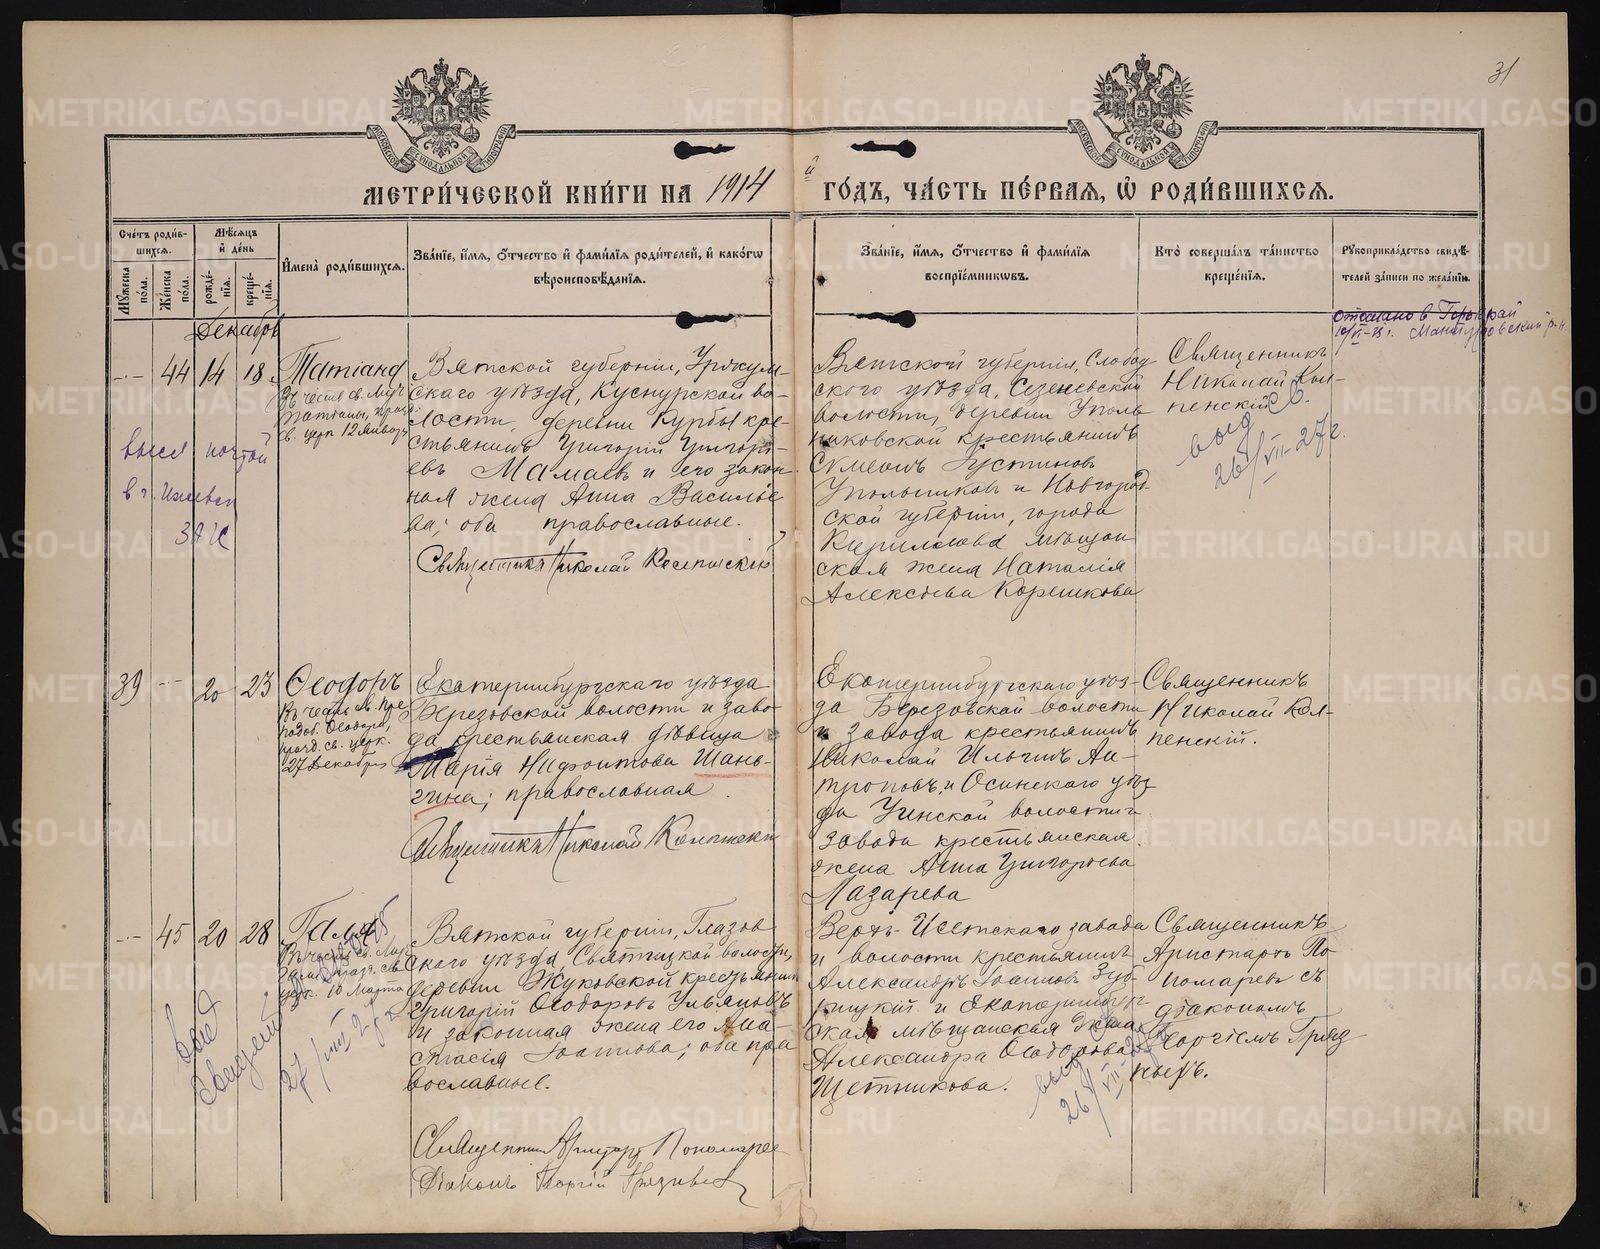 31
МЕТРИ́ЧЕСКОЙ КНИ́ГИ НА 1914 й ГО́ДЪ, ЧА́СТЬ ПЕ́РВАЯ, Ѡ҆ РОДИ́ВШИХСѦ.
Сче́тъ роди́в-
шихсѧ.
Мꙋ́жеска по́ла.
Же́нска по́ла.
Мѣ́сѧцъ и҆ де́нь
рожде́-нїѧ.
креще́-нїѧ.
И҆мена̀ роди́вшихсѧ.
Зва́нїе, и҆́мѧ, ѻ҆́тчество и҆ фами́лїѧ роди́телей, и҆ како́гѡ
вѣроисповѣ́данїѧ.
Зва́нїе, и҆́мѧ, ѻ҆́тчество и҆ фами́лїѧ
воспрїе́мникѡвъ.
Кто̀ соверша́лъ та́инство
креще́нїѧ.
Рꙋкоприкла́дство свидѣ́-
телей за́писи по жела́нїю.
Декабрь
44 14 18
Татіана
Въ честь св. Муч.
Татіаны, празд.
св. церк. 12 Января
Вятской губерніи, Уржум-
скаго уѣзда, Куснурской во-
лости, деревни Курбы кре-
стьянинъ Григорій Григорь-
евъ Мамаевъ и его закон-
ная жена Анна Василье-
ва; оба православные.
Священникъ Николай
Вятской губерніи, Слобод
ского уѣзда, Сезеневской
волости, деревни Уполь
никовской крестьянинъ
Симеонъ Іустиновъ
Упольниковъ и Новгород-
ской губерніи, города
Кириллова мѣщан
ская жена Наталія
Алексѣева Корешкова
Священникъ
Николай Кол-
пенскій
выд
26/VII-27г.
отослано в Горький
высл почтой
в г.
ЗАГС
39 20 23
Ѳеодоръ
Въ честь св. Пре
подоб. Ѳеодора,
празд. св. церк.
27 Декабря
Екатеринбургскаго уѣзда
Березовской волости и заво-
да крестьянская дѣвица
Марія Нифонтова Шань-
гина; православная.
Священникъ Николай
Екатеринбургскаго уѣз-
да Березовской волости
и завода крестьянинъ
Николай Ильинъ Ан-
троповъ, и Осинскаго уѣз-
да Уинской волости и
завода крестьянская
жена Анна Григорьева
Лазарева
Священникъ
Николай Кол-
пенскій.
45 20 28
Галя
церк. 10 Марта
Вятской губерніи, Глазов
скаго уѣзда, Святицкой волости,
деревни Жуковской крестьянинъ
Григорій Ѳеодоровъ Ульяновъ
и законная жена его Ана-
стасія Іоаннова; оба пра
вославные.
Священникъ Аристархъ Пономаревъ
Діаконъ Георгій
Верхъ-Исетскаго завода
и волости крестьянинъ
Александръ Іоанновъ Зуб-
рицкій и Екатеринбург-
ская мѣщанская жена
Александра Ѳеодорова
Щетникова.
Священникъ
Аристархъ По
номаревъ съ
діакономъ
Георгіемъ Гряз
ныхъ.
27/VIII 27 г
выд
26/VII-27
METRIKI.GASO-URAL.RU